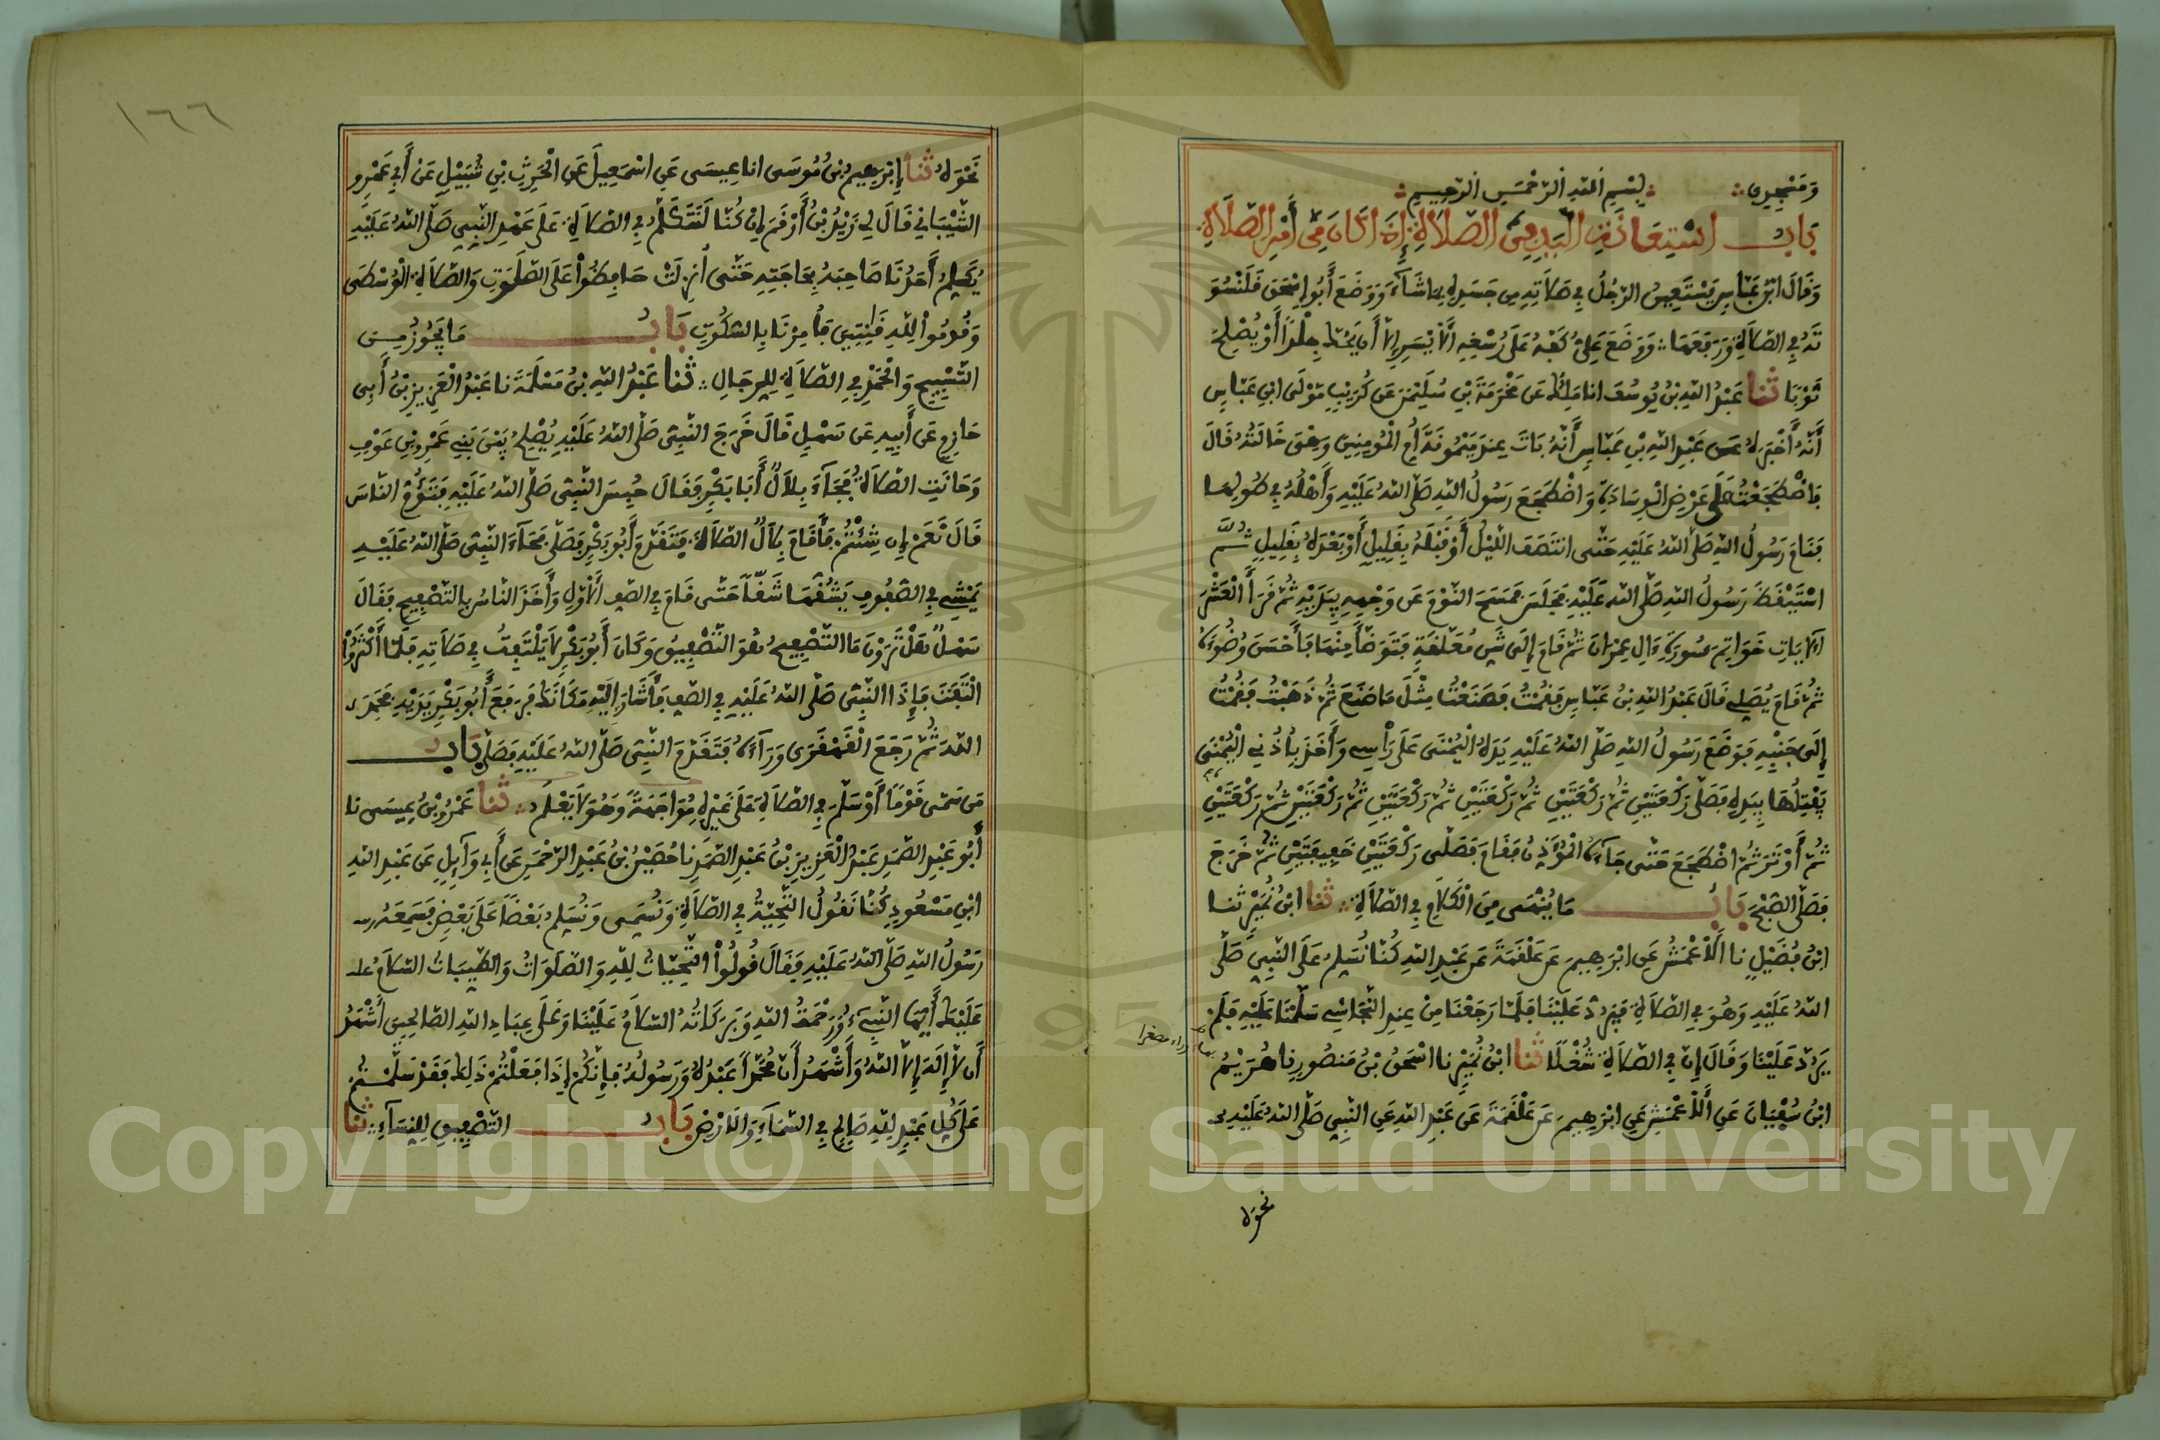 وَمِنْبَرِي
بِسْمِ اللَّهِ الرَّحْمَنِ الرَّحِيمِ
بَابُ اسْتِعَانَةِ الْيَدِ فِي الصَّلَاةِ إِذَا كَانَ مِنْ أَمْرِ الصَّلَاةِ
وَقَالَ ابْنُ عَبَّاسٍ يَسْتَعِينُ الرَّجُلُ فِي صَلَاتِهِ مِن جَسَدِهِ بِمَا شَاءَ وَوَضَعَ أَبُو إِسْحَقَ قَلَنْسُوَ
تَهُ فِي الصَّلَاةِ وَرَفَعَهَا وَوَضَعَ عَلِيٌّ كَفَّهُ عَلَى رُسْغِهِ الْأَيْسَرِ إِلَّا أَن يَحُكَّ جِلْدًا أَوْ يُصْلِحَ
ثَوْبًا ثنا عَبْدُ اللَّهِ بْنُ يُوسُفَ انا مَلِكٌ عَن مَخْرَمَةَ بْنِ سُلَيْمَنَ عَن كُرَيْبٍ مَوْلَى ابْنِ عَبَّاسٍ
أَنَّهُ أَخْبَرَهُ عَن عَبْدِ اللَّهِ بْنِ عَبَّاسٍ أَنَّهُ بَاتَ عِندَ مَيْمُونَةَ أُمِّ الْمُومِنِينَ وَهْيَ خَالَتُهُ قَالَ
فَاضْطَجَعْتُ عَلَى عَرْضِ الْوِسَادَةِ وَاضْطَجَعَ رَسُولُ اللَّهِ صَلَّى اللَّهُ عَلَيْهِ وَأَهْلُهُ فِي طُولِهَا
فَنَامَ رَسُولُ اللَّهِ صَلَّى اللَّهُ عَلَيْهِ حَتَّى انتَصَفَ اللَّيْلُ أَوْ قَبْلَهُ بِقَلِيلٍ أَوْ بَعْدَهُ بِقَلِيلٍ ثُمَّ
اسْتَيْقَظَ رَسُولُ اللَّهِ صَلَّى اللَّهُ عَلَيْهِ فَجَلَسَ فَمَسَحَ النَّوْمَ عَن وَجْهِهِ بِيَدَيْهِ ثُمَّ قَرَأَ الْعَشْرَ
الْآيَاتِ خَوَاتِمَ سُورَةِ ءَالِ عِمْرَانَ ثُمَّ قَامَ إِلَى شَنٍّ مُعَلَّقَةٍ فَتَوَضَّأَ مِنْهَا فَأَحْسَنَ وُضُوءَهُ
ثُمَّ قَامَ يُصَلِّي قَالَ عَبْدُ اللَّهِ بْنُ عَبَّاسٍ فَقُمْتُ فَصَنَعْتُ مِثْلَ مَا صَنَعَ ثُمَّ ذَهَبْتُ فَقُمْتُ
إِلَى جَنْبِهِ فَوَضَعَ رَسُولُ اللَّهِ صَلَّى اللَّهُ عَلَيْهِ يَدَهُ الْيُمْنَى عَلَى رَأْسِي وَأَخَذَ بِأُذُنِي الْيُمْنَى
يَفْتِلُهَا بِيَدِهِ فَصَلَّى رَكْعَتَيْنِ ثُمَّ رَكْعَتَيْنِ ثُمَّ رَكْعَتَيْنِ ثُمَّ رَكْعَتَيْنِ ثُمَّ رَكْعَتَيْنِ ثُمَّ رَكْعَتَيْنِ
ثُمَّ أَوْتَرَ ثُمَّ اضْطَجَعَ حَتَّى جَاءَهُ الْمُؤَذِّنُ فَقَامَ فَصَلَّى رَكْعَتَيْنِ خَفِيفَتَيْنِ ثُمَّ خَرَجَ
فَصَلَّى الصُّبْحَ بَابُ مَا يُنْهَى مِنَ الْكَلَامِ فِي الصَّلَاةِ ثنا ابْنُ نُمَيْرٍ ثنا
ابْنُ فُضَيْلٍ نا الْأَعْمَشُ عَنِ ابْرَهِيمَ عَن عَلْقَمَةَ عَن عَبْدِ اللَّهِ كُنَّا نُسَلِّمُ عَلَى النَّبِيِّ صَلَّى
اللَّهُ عَلَيْهِ وَهُوَ فِي الصَّلَاةِ فَيَرُدُّ عَلَيْنَا فَلَمَّا رَجَعْنَا مِنْ عِندِ النَّجَاشِي سَلَّمْنَا عَلَيْهِ فَلَمْ
يَرُدَّ عَلَيْنَا وَقَالَ إِنَّ فِي الصَّلَاةِ شُغْلًا ثنا ابْنُ نُمَيْرٍ نا اسْحَقُ بْنُ مَنصُورٍ نا هُرَيْمُ
ابْنُ سُفْيَانَ عَنِ الْأَعْمَشِ عَنِ ابْرَهِيمَ عَن عَلْقَمَةَ عَن عَبْدِ اللَّهِ عَنِ النَّبِيِّ صَلَّى اللَّهُ عَلَيْهِ
نحوه
١٦٦
نَحْوَهُ ثنا إِبْرَهِيمُ بْنُ مُوسَى انا عِيسَى عَنِ اسْمَعِيلَ عَنِ الْحَرِثِ بْنِ شُبَيْلٍ عَنْ أَبِي عَمْرٍو
الشَّيْبَانِي قَالَ لِي زَيْدُ بْنُ أَرْقَمَ إِنْ كُنَّا لَنَتَكَلَّمُ فِي الصَّلَاةِ عَلَى عَهْدِ النَّبِيِّ صَلَّى اللَّهُ عَلَيْهِ
يُكَلِّمُ أَحَدُنَا صَاحِبَهُ بِحَاجَتِهِ حَتَّى أُنزِلَتْ حَافِظُواْ عَلَى الصَّلَوَتِ وَالصَّلَاةِ الْوُسْطَى
وَقُومُواْ لِلَّهِ قَنِتِينَ فَأُمِرْنَا بِالسُّكُوتِ بَابُ مَا يَجُوزُ مِنَ
التَّسْبِيحِ وَالْحَمْدِ فِي الصَّلَاةِ لِلرِّجَالِ ثنا عَبْدُ اللَّهِ بْنُ مَسْلَمَةَ نا عَبْدُ الْعَزِيزِ بْنُ أَبِي
حَازِمٍ عَن أَبِيهِ عَن سَهْلٍ قَالَ خَرَجَ النَّبِيُّ صَلَّى اللَّهُ عَلَيْهِ يُصْلِحُ بَيْنَ بَنِي عَمْرِو بْنِ عَوْفٍ
وَحَانَتِ الصَّلَاةُ فَجَاءَ بِلَالٌ أَبَا بَكْرٍ فَقَالَ حُبِسَ النَّبِيُّ صَلَّى اللَّهُ عَلَيْهِ فَتَؤُمُّ النَّاسَ
قَالَ نَعَمْ إِن شِئْتُمْ فَأَقَامَ بِلَالٌ الصَّلَاةَ فَتَقَدَّمَ أَبُو بَكْرٍ فَصَلَّى فَجَاءَ النَّبِيُّ صَلَّى اللَّهُ عَلَيْهِ
يَمْشِي فِي الصُّفُوفِ يَشُقُّهَا شَقًّا حَتَّى قَامَ فِي الصَّفِّ الْأَوَّلِ وَأَخَذَ النَّاسُ بِالتَّصْفِيحِ فَقَالَ
سَهْلٌ هَلْ تَدْرُونَ مَا التَّصْفِيحُ هُوَ التَّصْفِيقُ وَكَانَ أَبُو بَكْرٍ لَا يَلْتَفِتُ فِي صَلَاتِهِ فَلَمَّا أَكْثَرُواْ
الْتَفَتَ فَإِذَا النَّبِيُّ صَلَّى اللَّهُ عَلَيْهِ فِي الصَّفِّ فَأَشَارَ إِلَيْهِ مَكَانَكَ فَرَفَعَ أَبُو بَكْرٍ يَدَيْهِ فَحَمِدَ
اللَّهَ ثُمَّ رَجَعَ الْقَهْقَرَى وَرَاءَهُ فَتَقَدَّمَ النَّبِيُّ صَلَّى اللَّهُ عَلَيْهِ فَصَلَّى بَابُ
مَن سَمَّى قَوْمًا أَوْ سَلَّمَ فِي الصَّلَاةِ عَلَى غَيْرِهِ مُوَاجَهَةً وَهُوَ لَا يَعْلَمُ ثنا عَمْرُو بْنُ عِيسَى نا
أَبُو عَبْدِ الصَّمَدِ عَبْدُ الْعَزِيزِ بْنُ عَبْدِ الصَّمَدِ نا حُصَيْنُ بْنُ عَبْدِ الرَّحْمَنِ عَن أَبِي وَائِلٍ عَن عَبْدِ اللَّهِ
ابْنِ مَسْعُودٍ كُنَّا نَقُولُ التَّحِيَّةُ فِي الصَّلَاةِ وَنُسَمِّي وَنُسَلِّمُ بَعْضُنَا عَلَى بَعْضٍ فَسَمِعَهُ
رَسُولُ اللَّهِ صَلَّى اللَّهُ عَلَيْهِ فَقَالَ قُولُواْ التَّحِيَّاتُ لِلَّهِ وَالصَّلَوَاتُ وَالطَّيِّبَاتُ السَّلَامُ
عَلَيْكَ أَيُّهَا النَّبِيءُ وَرَحْمَتُ اللَّهِ وَبَرَكَاتُهُ السَّلَامُ عَلَيْنَا وَعَلَى عِبَادِ اللَّهِ الصَّالِحِينَ أَشْهَدُ
أَن لَّا إِلَهَ إِلَّا اللَّهُ وَأَشْهَدُ أَنَّ مُحَمَّدًا عَبْدُهُ وَرَسُولُهُ فَإِنَّكُمْ إِذَا فَعَلْتُمْ ذَلِكَ فَقَدْ سَلَّمْتُمْ
عَلَى كُلِّ عَبْدٍ لِلَّهِ صَالِحٍ فِي السَّمَاءِ وَالْأَرْضِ بَابُ التَّصْفِيقِ لِلنِّسَاءِ ثنا
Copyright © King Saud University